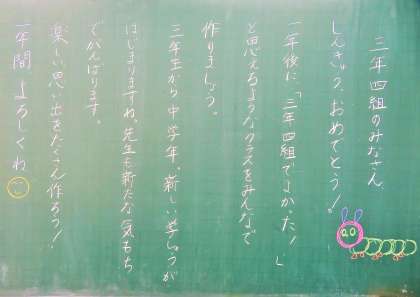 三年四組のみなさん、
しんきゅう、おめでとう！
一年後に、「三年四組でよかった！」
と思えるようなクラスをみんなで
作りましょう。
三年生から中学年、新しい学しゅうが
はじまりますね。先生も新たな気もち
でがんばります。
楽しい思い出をたくさん作ろう！
一年間よろしくね